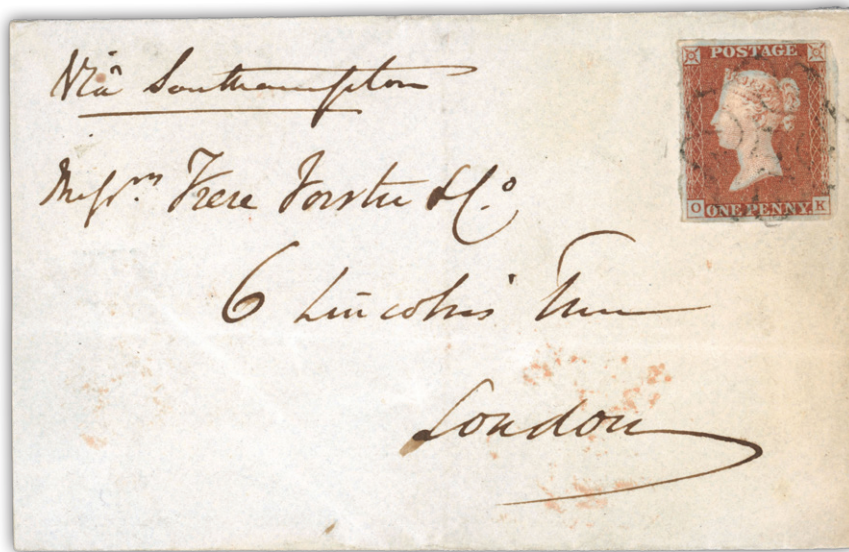 Viâ Southampton
Messrs. Frere Forster & Co.
6 Lincoln's Inn
London
POSTAGE
ONE PENNY.
O K